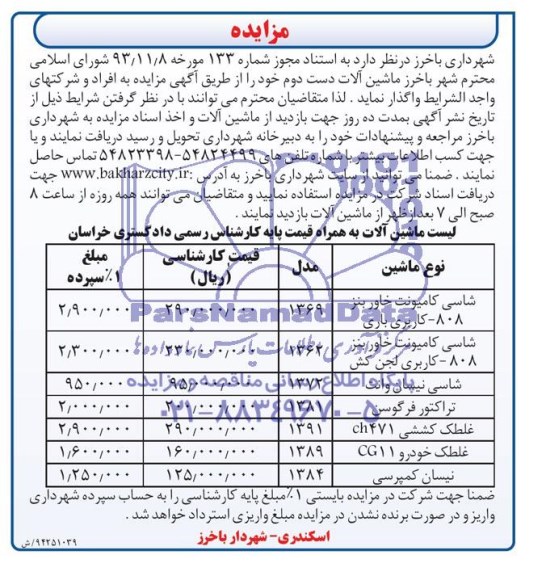 مزایده
شهرداری باخرز درنظر دارد به استناد مجوز شماره ۱۳۳ مورخه ۹۳/۱۱/۸ شورای اسلامی
محترم شهر باخرز ماشین آلات دست دوم خود را از طریق آگهی مزایده به افراد و شرکتهای
واجد الشرایط واگذار نماید . لذا متقاضیان محترم می توانند با در نظر گرفتن شرایط ذیل از
تاریخ نشر آگهی بمدت ده روز جهت بازدید از ماشین آلات و اخذ اسناد مزایده به شهرداری
باخرز مراجعه و پیشنهادات خود را به دبیرخانه شهرداری تحویل و رسید دریافت نمایند و یا
جهت کسب اطلاعات بیشتر با شماره تلفن های ۵۴۸۲۴۴۹۹-۵۴۸۲۳۳۹۸ تماس حاصل
نمایند . ضمنا می توانید از سایت شهرداری باخرز به آدرس :www.bakharzcity.ir جهت
دریافت اسناد شرکت در مزایده استفاده نمایید و متقاضیان می توانند همه روزه از ساعت ۸
صبح الی ۷ بعدازظهر از ماشین آلات بازدید نمایند .
لیست ماشین آلات به همراه قیمت پایه کارشناس رسمی دادگستری خراسان
نوع ماشین مدل قیمت کارشناسی (ریال) مبلغ ۱٪سپرده
شاسی کامیونت خاور بنز ۸۰۸-کاربری باری ۱۳۶۹ ۲۹۰/۰۰۰/۰۰۰ ۲/۹۰۰/۰۰۰
شاسی کامیونت خاور بنز ۸۰۸-کاربری لجن کش ۱۳۶۲ ۲۳۰/۰۰۰/۰۰۰ ۲/۳۰۰/۰۰۰
شاسی نیسان وانت ۱۳۷۲ ۹۵/۰۰۰/۰۰۰ ۹۵۰/۰۰۰
تراکتور فرگوسن ۱۳۸۷ ۲۰۰/۰۰۰/۰۰۰ ۲/۰۰۰/۰۰۰
غلطک کششی ch۴۷۱ ۱۳۹۱ ۲۹۰/۰۰۰/۰۰۰ ۲/۹۰۰/۰۰۰
غلطک خودرو CG۱۱ ۱۳۸۹ ۱۶۰/۰۰۰/۰۰۰ ۱/۶۰۰/۰۰۰
نیسان کمپرسی ۱۳۸۴ ۱۲۵/۰۰۰/۰۰۰ ۱/۲۵۰/۰۰۰
ParsNamadData
پایگاه اطلاع رسانی مناقصه و مزایده
۰۲۱-۸۸۳۴۹۶۷۰-۵
ضمنا جهت شرکت در مزایده بایستی ۱٪مبلغ پایه کارشناسی را به حساب سپرده شهرداری
واریز و در صورت برنده نشدن در مزایده مبلغ واریزی استرداد خواهد شد .
اسکندری- شهردار باخرز
۹۴۲۵۱۰۳۹/ش